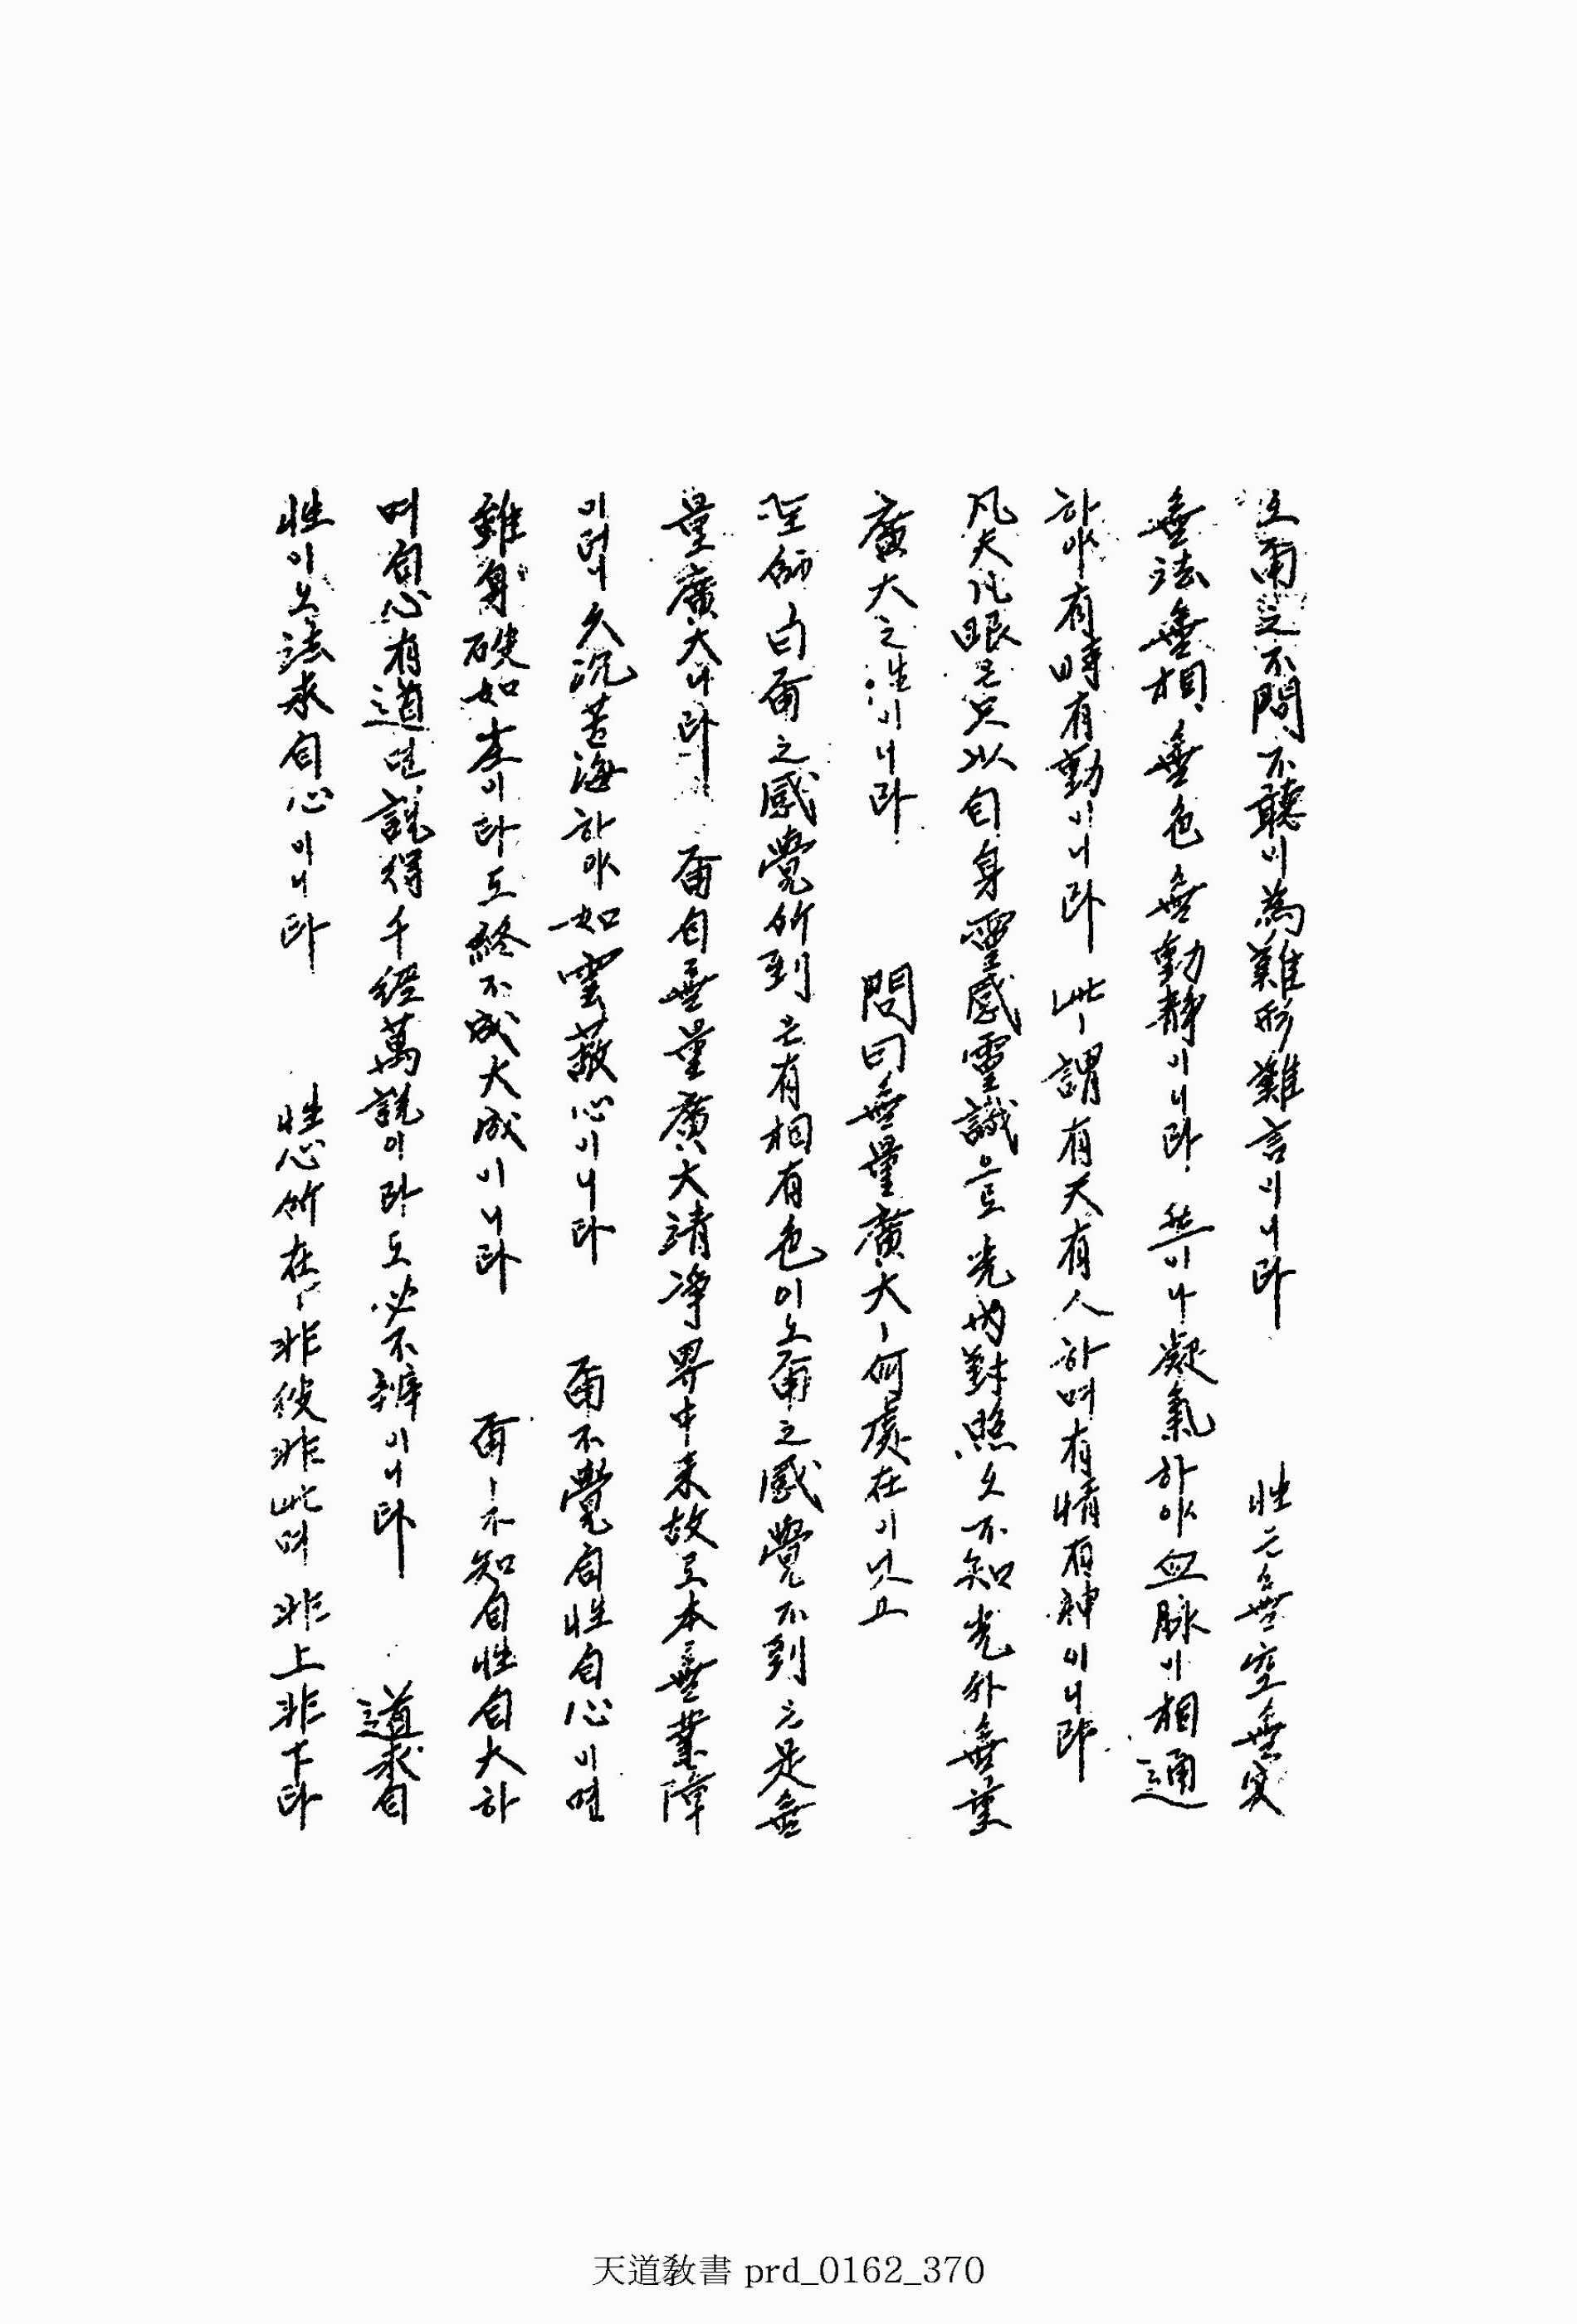 오 爾之不問不聽이 為難形難言이니라 性은 無空無實
無法無相 無色無動靜이니라 然이나 凝氣하야 血脉이 相通
하야 有時有動이니라 此ㅣ 謂有天有人하며 有情有神이니라
凡夫凡眼은 只以自身靈感靈識으로 光內對照오 不知光外無量
廣大之性이니라 問曰 無量廣大ㅣ 何處在이닛고
聖師曰 爾之感覺所到은 有相有色이오 爾之感覺不到은 是無
量廣大니라 爾自無量廣大清淨界中来故로 本無業障
이러니 久沉苦海하야 如雲蔽心이니라 爾不覺自性自心이면
雖身碎如塵이라도 終不成大成이니라 爾ㅣ 不知自性自大하
며 自心有道면 說得千經萬說이라도 必不辨이니라 道求自
性이오 法求自心이니라 性心所在ㅣ 非彼非此며 非上非下라
天道敎書 prd_0162_370